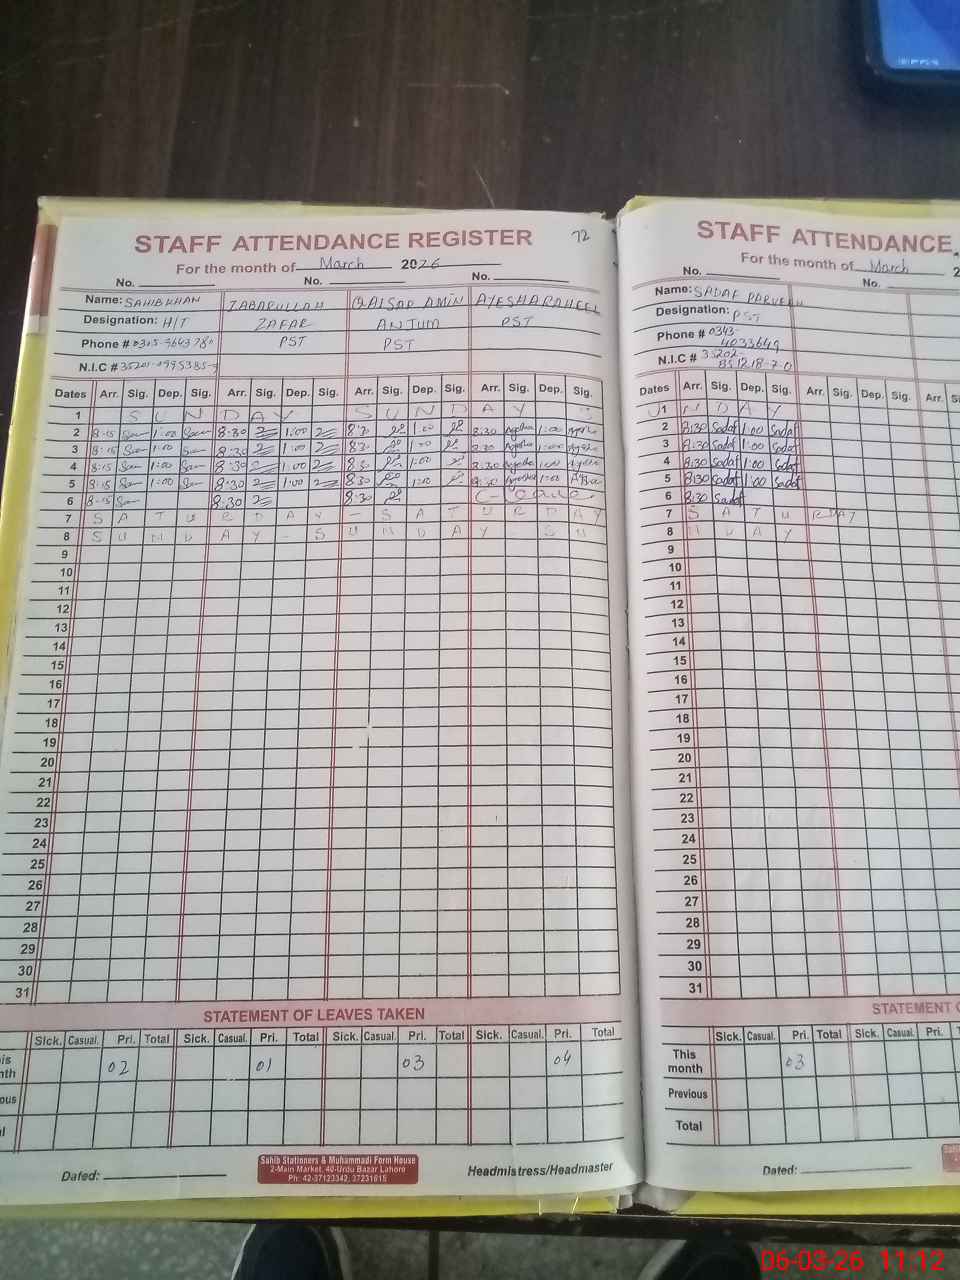 STAFF ATTENDANCE REGISTER
72
For the month of March 2026
No. No. No.
Name: SAHIB KHAN ZABARULLAH QAISAR AMIN AYESHA RAHEEL
Designation: H/T ZAFAR ANJUM PST
Phone # PST PST
N.I.C #
Dates Arr. Sig. Dep. Sig. Arr. Sig. Dep. Sig. Arr. Sig. Dep. Sig. Arr. Sig. Dep. Sig.
1 S U N D A Y S U N D A Y
2 8-15 1:00 8:30 1:00 8:30 1:00 8:30 Ayesha 1:00 Ayesha
3 8:15 1:00 8:30 1:00 8:30 1:00 8:30 Ayesha 1:00 Ayesha
4 8-15 1:00 8:30 1:00 8:30 1:00 8:30 Ayesha 1:00 Ayesha
5 8-15 1:00 8:30 1:00 8:30 1:00 8:30 Ayesha 1:00
6 8-15 8:30 8:30 C-Leave
7 S A T U R D A Y - S A T U R D A Y
8 S U N D A Y - S U N D A Y S U
9
10
11
12
13
14
15
16
17
18
19
20
21
22
23
24
25
26
27
28
29
30
31
STATEMENT OF LEAVES TAKEN
Sick. Casual. Pri. Total Sick. Casual. Pri. Total Sick. Casual. Pri. Total Sick. Casual. Pri. Total
02 01 03 04
Dated:
Sahib Stationers & Muhammadi Form House
2-Main Market, 40-Urdu Bazar Lahore
Ph: 42-37123342, 37231615
Headmistress/Headmaster
STAFF ATTENDANCE
For the month of March
No. No.
Name: SADAF PARVEEN
Designation: PST
Phone # 0343-
4033649
N.I.C # 35202-
Dates Arr. Sig. Dep. Sig. Arr. Sig. Dep. Sig. Arr.
1 N D A Y
2 8:30 Sadaf 1:00 Sadaf
3 8:30 Sadaf 1:00 Sadaf
4 8:30 Sadaf 1:00 Sadaf
5 8:30 Sadaf 1:00 Sadaf
6 8:30 Sadaf
7 S A T U R D A Y
8 N D A Y
9
10
11
12
13
14
15
16
17
18
19
20
21
22
23
24
25
26
27
28
29
30
31
STATEMENT
Sick. Casual. Pri. Total Sick. Casual. Pri.
This
month 03
Previous
Total
Dated:
06-03-26 11:12